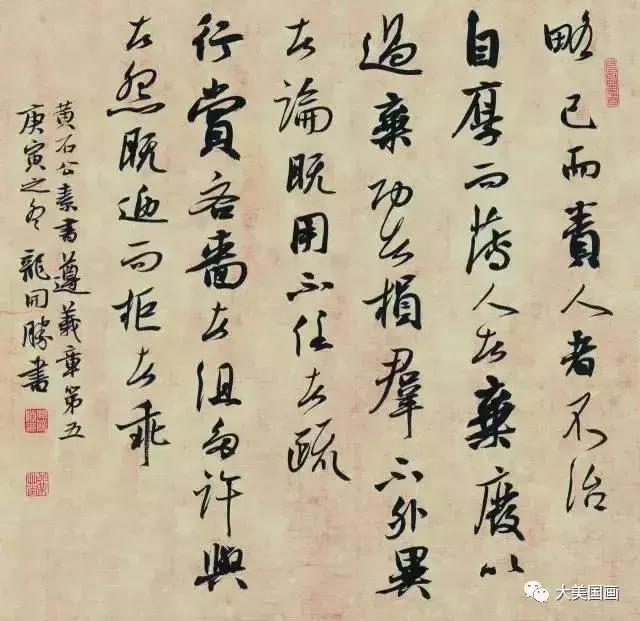 略己而責人者不治
自厚而薄人者棄廢以
過棄功者損羣下外異
者論既用不任者疏
行賞吝嗇者沮多許與
者怨既迎而拒者乖
黃石公素書遵義章第五
庚寅之冬 龍開勝書
大美国画